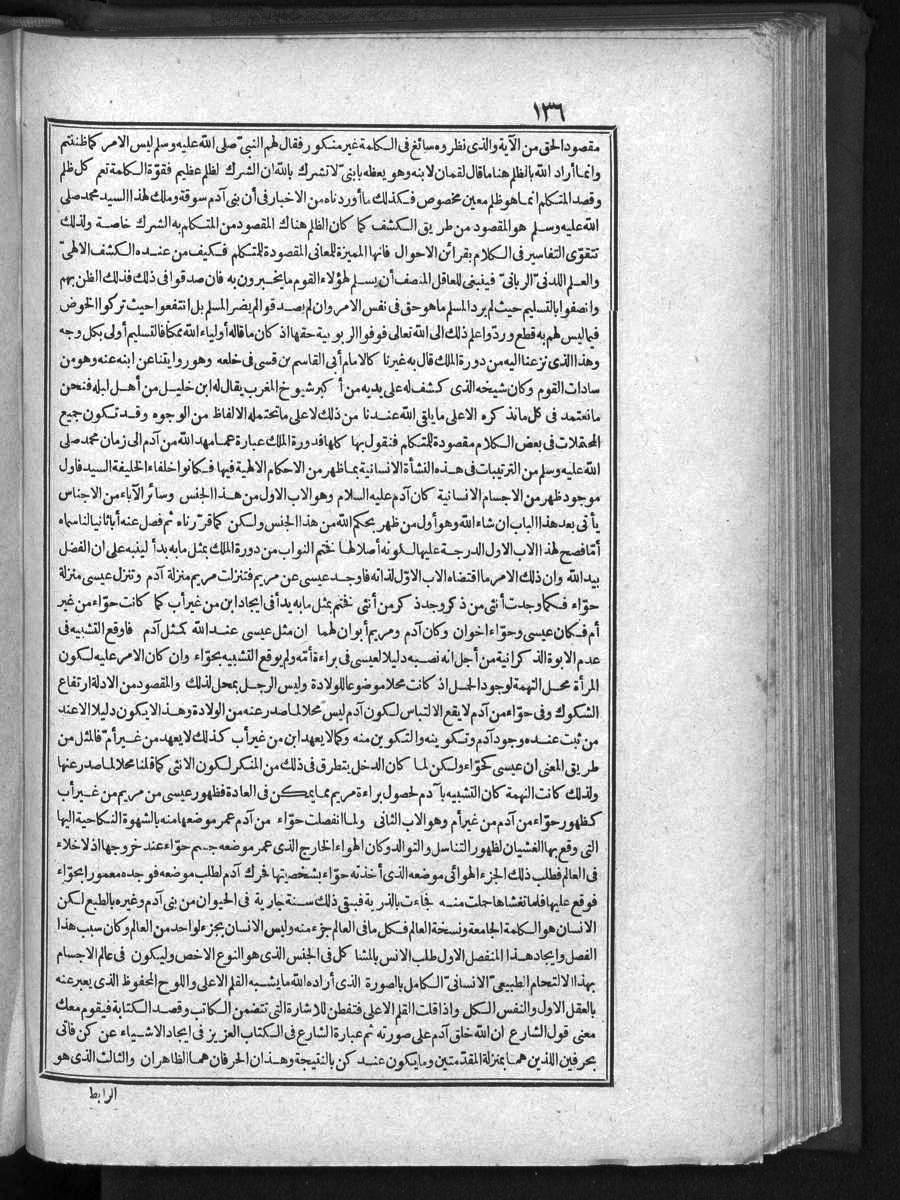 ١٣٦
مقصود الحق من الآية والذى نظروه سائغ فى الكلمة غير منكور فقال لهم النبىّ صلى الله عليه وسلم ليس الامر كما ظننتم
وانما أراد الله بالظلم هنا ما قال لقمان لابنه وهو يعظه يابنىّ لا تشرك بالله ان الشرك لظلم عظيم فقوّة الكلمة تعم كل ظلم
وقصد المتكلم انما هو ظلم معين مخصوص فكذلك ما أوردناه من الاخبار فى أن بنى آدم سوقة وملك لهذا السيد محمد صلى
الله عليه وسلم هو المقصود من طريق الكشف كما كان الظلم هناك المقصود من المتكلم به الشرك خاصة ولذلك
تتقوّى التفاسير فى الكلام بقرائن الاحوال فانها المميزة للمعانى المقصودة للمتكلم فكيف من عنده الكشف الالهىّ
والعلم اللدنىّ الربانىّ فينبغى للعاقل المنصف أن يسلم لهؤلاء القوم ما يخبرون به فان صدقوا فى ذلك فذلك الظن بهم
وانصفوا بالتسليم حيث لم يرد المسلم ما هو حق فى نفس الامر وان لم يصدقوا لم يضر المسلم بل انتفعوا حيث تركوا الخوض
فيما ليس لهم به قطع وردّوا علم ذلك الى الله تعالى فوفوا الربوبية حقها اذ كان ما قاله أولياء الله ممكا فالتسليم أولى بكل وجه
وهذا الذى نزعنا اليه من دورة الملك قال به غيرنا كالامام أبى القاسم بن قسى فى خلعه وهو روايتنا عن ابنه عنه وهو من
سادات القوم وكان شيخه الذى كشف له على يديه من أكبر شيوخ المغرب يقال له ابن خليل من أهل لبله فنحن
ما نعتمد فى كل ما نذكره الا على ما يلقى الله عندنا من ذلك لا على ما تحتمله الالفاظ من الوجوه وقد تكون جميع
المحتملات فى بعض الكلام مقصودة للمتكلم فنقول بها كلها فدورة الملك عبارة عما مهد الله من آدم الى زمان محمد صلى
الله عليه وسلم من الترتيبات فى هذه النشأة الانسانية بما ظهر من الاحكام الالهية فيها فكانوا خلفاء الخليفة السيد فاول
موجود ظهر من الاجسام الانسانية كان آدم عليه السلام وهو الاب الاول من هذا الجنس وسائر الآباء من الاجناس
يأتى بعد هذا الباب ان شاء الله وهو أول من ظهر بحكم الله من هذا الجنس ولكن كما قرّرناه ثم فصل عنه أبا ثانيا لنا سماه
أمّا فصح لهذا الاب الاول الدرجة عليها لكونه أصلا لها ختم النواب من دورة الملك بمثل ما به بدأ لينبه على ان الفضل
بيد الله وان ذلك الامر ما اقتضاه الاب الاوّل لذاته فاوجد عيسى عن مريم فتنزلت مريم منزلة آدم وتنزل عيسى منزلة
حوّاء فكما وجدت أنثى من ذكر وجد ذكر من أنثى ختم بمثل ما به بدأ فى ايجاد ابن من غير أب كما كانت حوّاء من غير
أم فكان عيسى وحوّاء اخوان وكان آدم ومريم أبوان لهما ان مثل عيسى عند الله كمثل آدم فاوقع التشبيه فى
عدم الابوة الذكرانية من أجل انه نصبه دليلا لعيسى فى براءة أمّه ولم يوقع التشبيه بحوّاء وان كان الامر عليه لكون
المرأة محل التهمة لوجود الحمل اذ كانت محلا موضوعا للولادة وليس الرجل بمحل لذلك والمقصود من الادلة ارتفاع
الشكوك وفى حوّاء من آدم لا يقع الالتباس لكون آدم ليس محلا لما صدر عنه من الولادة وهذا لا يكون دليلا الا عند
من ثبت عنده وجود آدم وتكوينه والتكوين منه وكما لا يعهد ابن من غير أب كذلك لا يعهد من غير أمّ فالمثل من
طريق المعنى ان عيسى كحوّاء ولكن لما كان الدخل يتطرق فى ذلك من المنكر لكون الانثى كما قلنا محلا لما صدر عنها
ولذلك كانت التهمة كان التشبيه بآدم لحصول براءة مريم مما يمكن فى العادة فظهور عيسى من مريم من غير أب
كظهور حوّاء من آدم من غير أم وهو الاب الثانى ولما انفصلت حوّاء من آدم عمر موضعها منه بالشهوة النكاحية اليها
التى وقع بها الغشيان لظهور التناسل والتوالد وكان الهواء الخارج الذى عمر موضعه جسم حوّاء عند خروجها اذ لا خلاء
فى العالم فطلب ذلك الجزء الهوائى موضعه الذى أخذته حوّاء بشخصيتها فحرك آدم لطلب موضعه فوجده معمورا بحوّاء
فوقع عليها فلما تغشاها حملت منه فجاءت بالذرية فبقى ذلك سنة جارية فى الحيوان من بنى آدم وغيره بالطبع لكن
الانسان هو الكلمة الجامعة ونسخة العالم فكل ما فى العالم جزء منه وليس الانسان بجزء لواحد من العالم وكان سبب هذا
الفصل وايجاد هذا المنفصل الاول طلب الانس بالمشا كل فى الجنس الذى هو النوع الاخص وليكون فى عالم الاجسام
بهذا الالتحام الطبيعىّ الانسانىّ الكامل بالصورة الذى أراده الله ما يشبه القلم الاعلى واللوح المحفوظ الذى يعبر عنه
بالعقل الاول والنفس الكل واذا قلت القلم الاعلى فتفطن للاشارة التى تتضمن الكاتب وقصد الكتابة فيقوم معك
معنى قول الشارع ان الله خلق آدم على صورته ثم عبارة الشارع فى الكتاب العزيز فى ايجاد الاشياء عن كن فاتى
بحرفين اللذين هما بمنزلة المقدّمتين وما يكون عند كن بالنتيجة وهذان الحرفان هما الظاهران والثالث الذى هو
الرابط